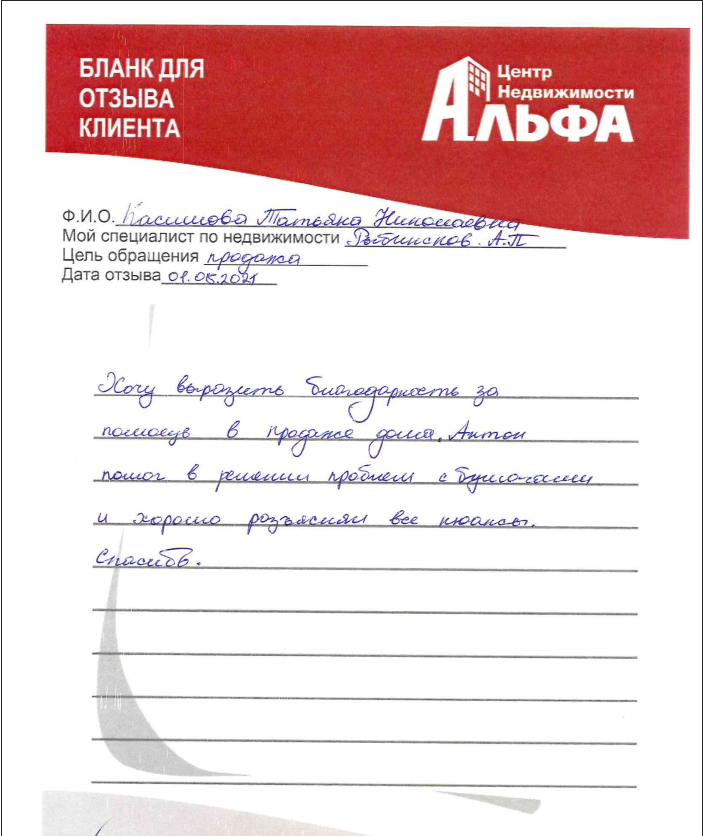 БЛАНК ДЛЯ
ОТЗЫВА
КЛИЕНТА
Центр
Недвижимости
АЛЬФА
Ф.И.О. Касимова Татьяна Николаевна
Мой специалист по недвижимости А.П
Цель обращения продажа
Дата отзыва 01.05.2021
Хочу выразить благодарность за
помощь в продаже дома. Антон
помог в решении проблем с бумагами
и хорошо разъяснял все нюансы.
Спасибо.